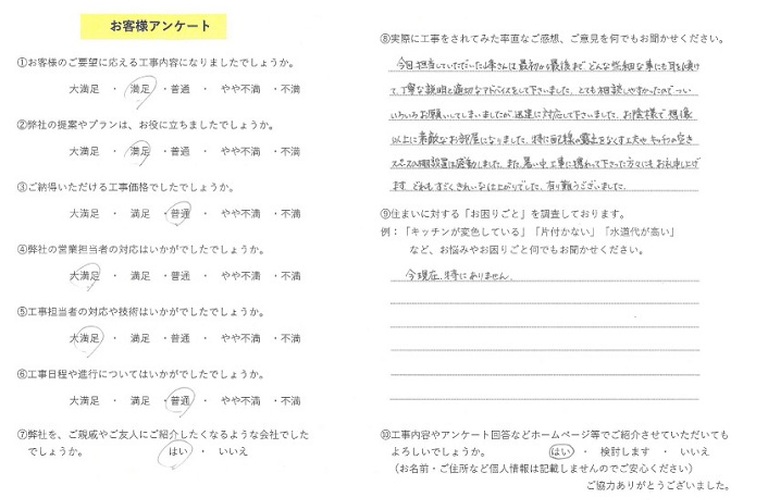 お客様アンケート
①お客様のご要望に応える工事内容になりましたでしょうか。
大満足 ・ 満足 ・普通 ・ やや不満 ・不満
②弊社の提案やプランは、お役に立ちましたでしょうか。
大満足 ・ 満足 ・普通 ・ やや不満 ・不満
③ご納得いただける工事価格でしたでしょうか。
大満足 ・ 満足 ・普通 ・ やや不満 ・不満
④弊社の営業担当者の対応はいかがでしたでしょうか。
大満足 ・ 満足 ・ 普通 ・ やや不満 ・不満
⑤工事担当者の対応や技術はいかがでしたでしょうか。
大満足 ・ 満足 ・ 普通 ・ やや不満 ・不満
⑥工事日程や進行についてはいかがでしたでしょうか。
大満足 ・ 満足 ・普通 ・ やや不満 ・不満
⑦弊社を、ご親戚やご友人にご紹介したくなるような会社でした
でしょうか。 はい ・ いいえ
⑧実際に工事をされてみた率直なご感想、ご意見を何でもお聞かせください。
今回担当していただいた さんは最初から最後までどんな些細な事にも耳を傾け
て、丁寧な説明と適切なアドバイスをして下さいました。とても相談しやすかったのでつい
いろいろお願いしてしまいましたが、迅速に対応して下さいました。お陰様で想像
以上に素敵なお部屋になりました。特に配線の露出をなくす工夫やキッチンの空き
スペースの棚設置は感動しました。また、暑い中、工事に携わって下さった方々にもお礼申し上げ
ます。どれもすごくきれいな仕上がりでした。有り難うございました。
⑨住まいに対する「お困りごと」を調査しております。
例：「キッチンが変色している」「片付かない」「水道代が高い」
など、お悩みやお困りごと何でもお聞かせください。
今現在、特にありません。
⑩工事内容やアンケート回答などホームページ等でご紹介させていただいても
よろしいでしょうか。 はい ・ 検討します ・ いいえ
（お名前・ご住所など個人情報は記載しませんのでご安心ください）
ご協力ありがとうございました。